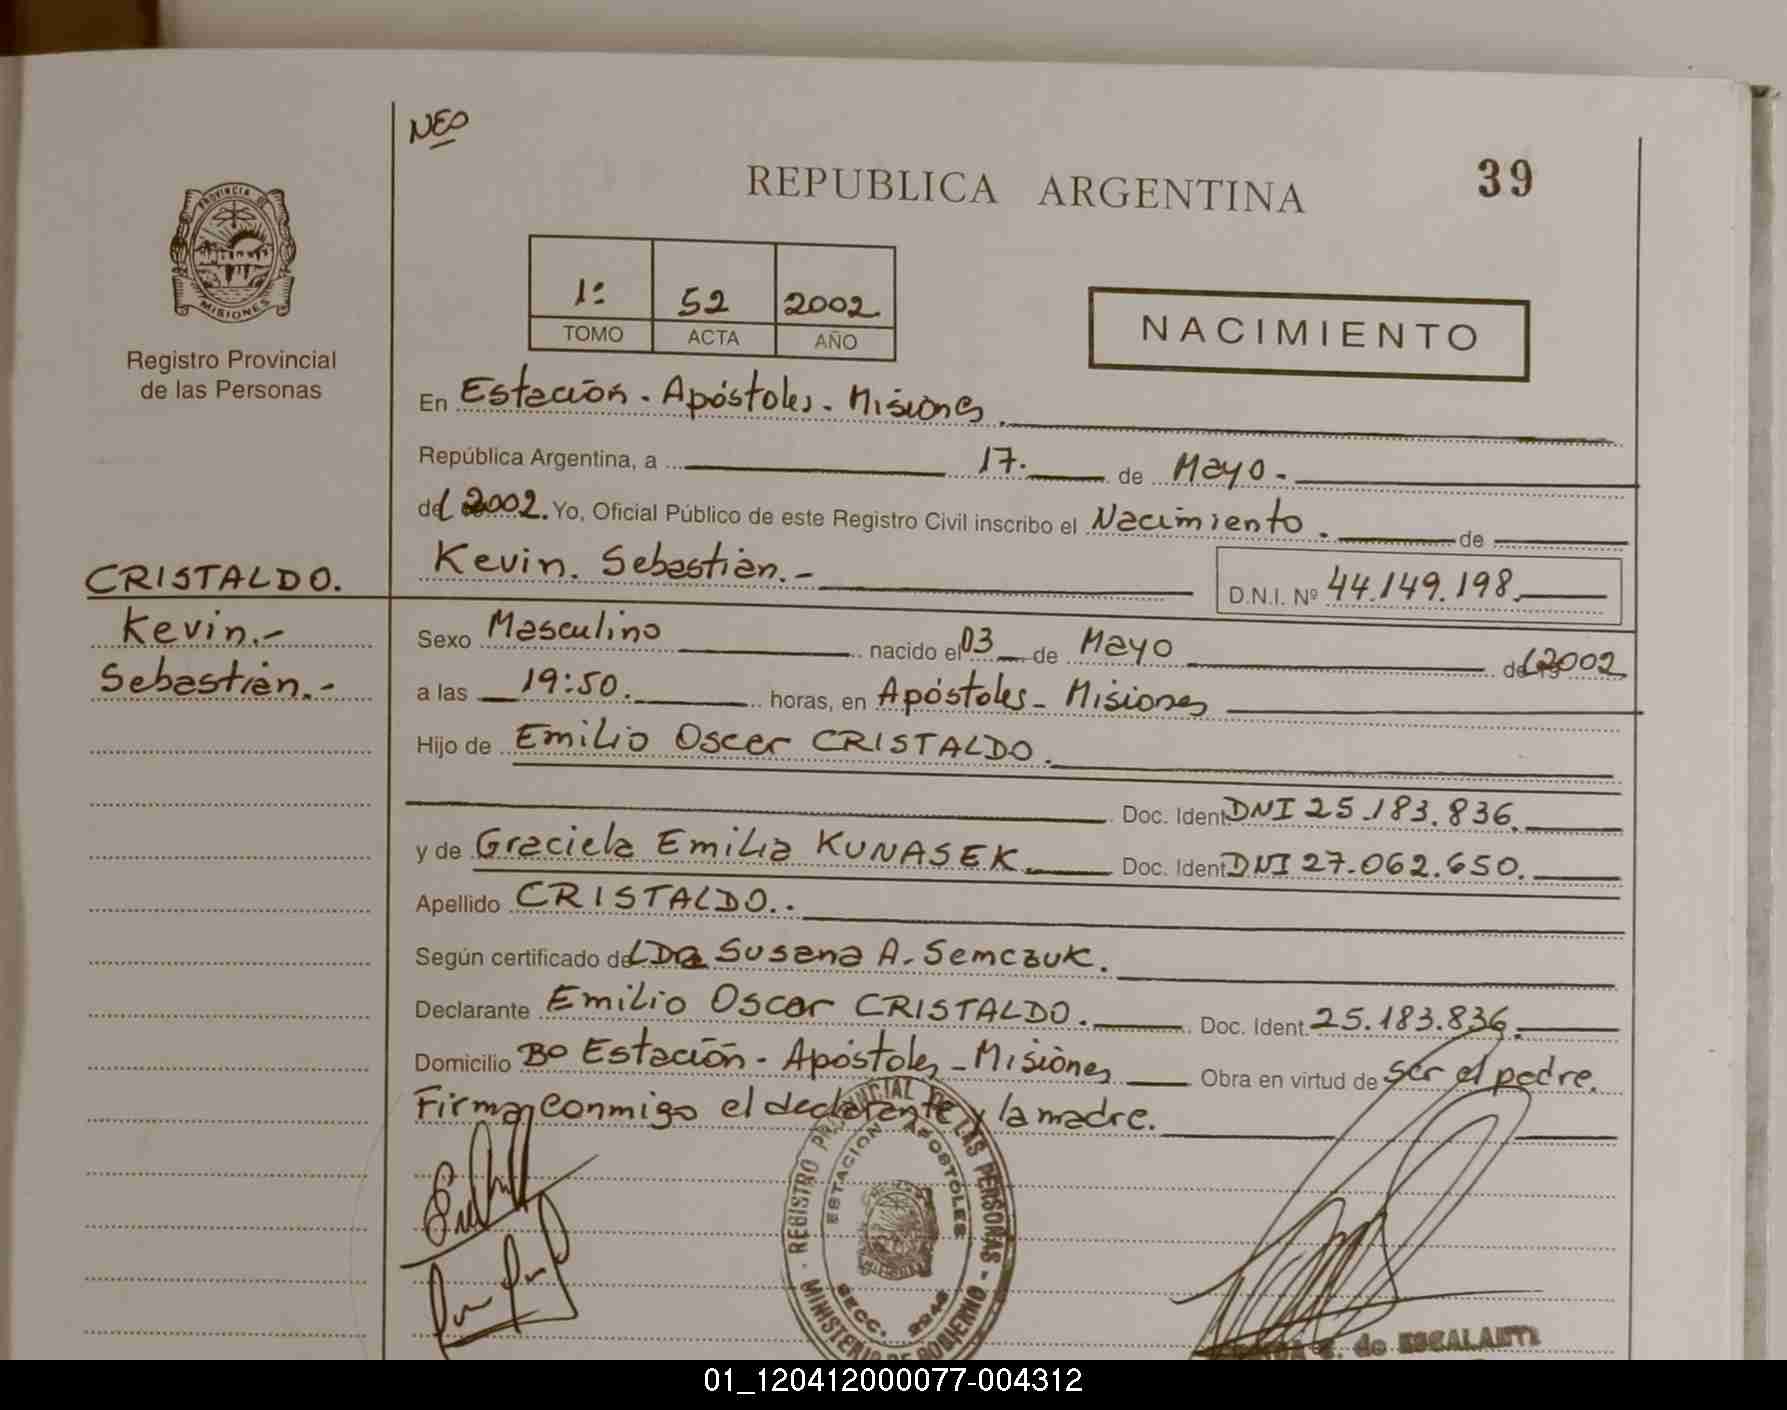 NEO
REPUBLICA ARGENTINA
39
PROVINCIA DE
MISIONES
Registro Provincial
de las Personas
1º 52 2002
TOMO ACTA AÑO
NACIMIENTO
En Estación - Apóstoles - Misiones
República Argentina, a 17 de Mayo -
del 2002. Yo, Oficial Público de este Registro Civil inscribo el Nacimiento . de
Kevin. Sebastián.-
D.N.I. Nº 44.149.198.
CRISTALDO.
Kevin.-
Sebastián.-
Sexo Masculino nacido el 03 de Mayo del 2002
a las 19:50. horas, en Apóstoles - Misiones
Hijo de Emilio Oscar CRISTALDO.
Doc. Ident. DNI 25.183.836.
y de Graciela Emilia KUNASEK. Doc. Ident. DNI 27.062.650.
Apellido CRISTALDO..
Según certificado de LDa Susana A. Semczuk.
Declarante Emilio Oscar CRISTALDO. Doc. Ident. 25.183.836.
Domicilio Bo Estación - Apóstoles - Misiones Obra en virtud de ser el padre.
Firman conmigo el declarante y la madre.
REGISTRO PROVINCIAL DE LAS PERSONAS - MINISTERIO DE GOBIERNO -
ESTACION APOSTOLES
SECC.
de ESCALANTE
01_120412000077-004312